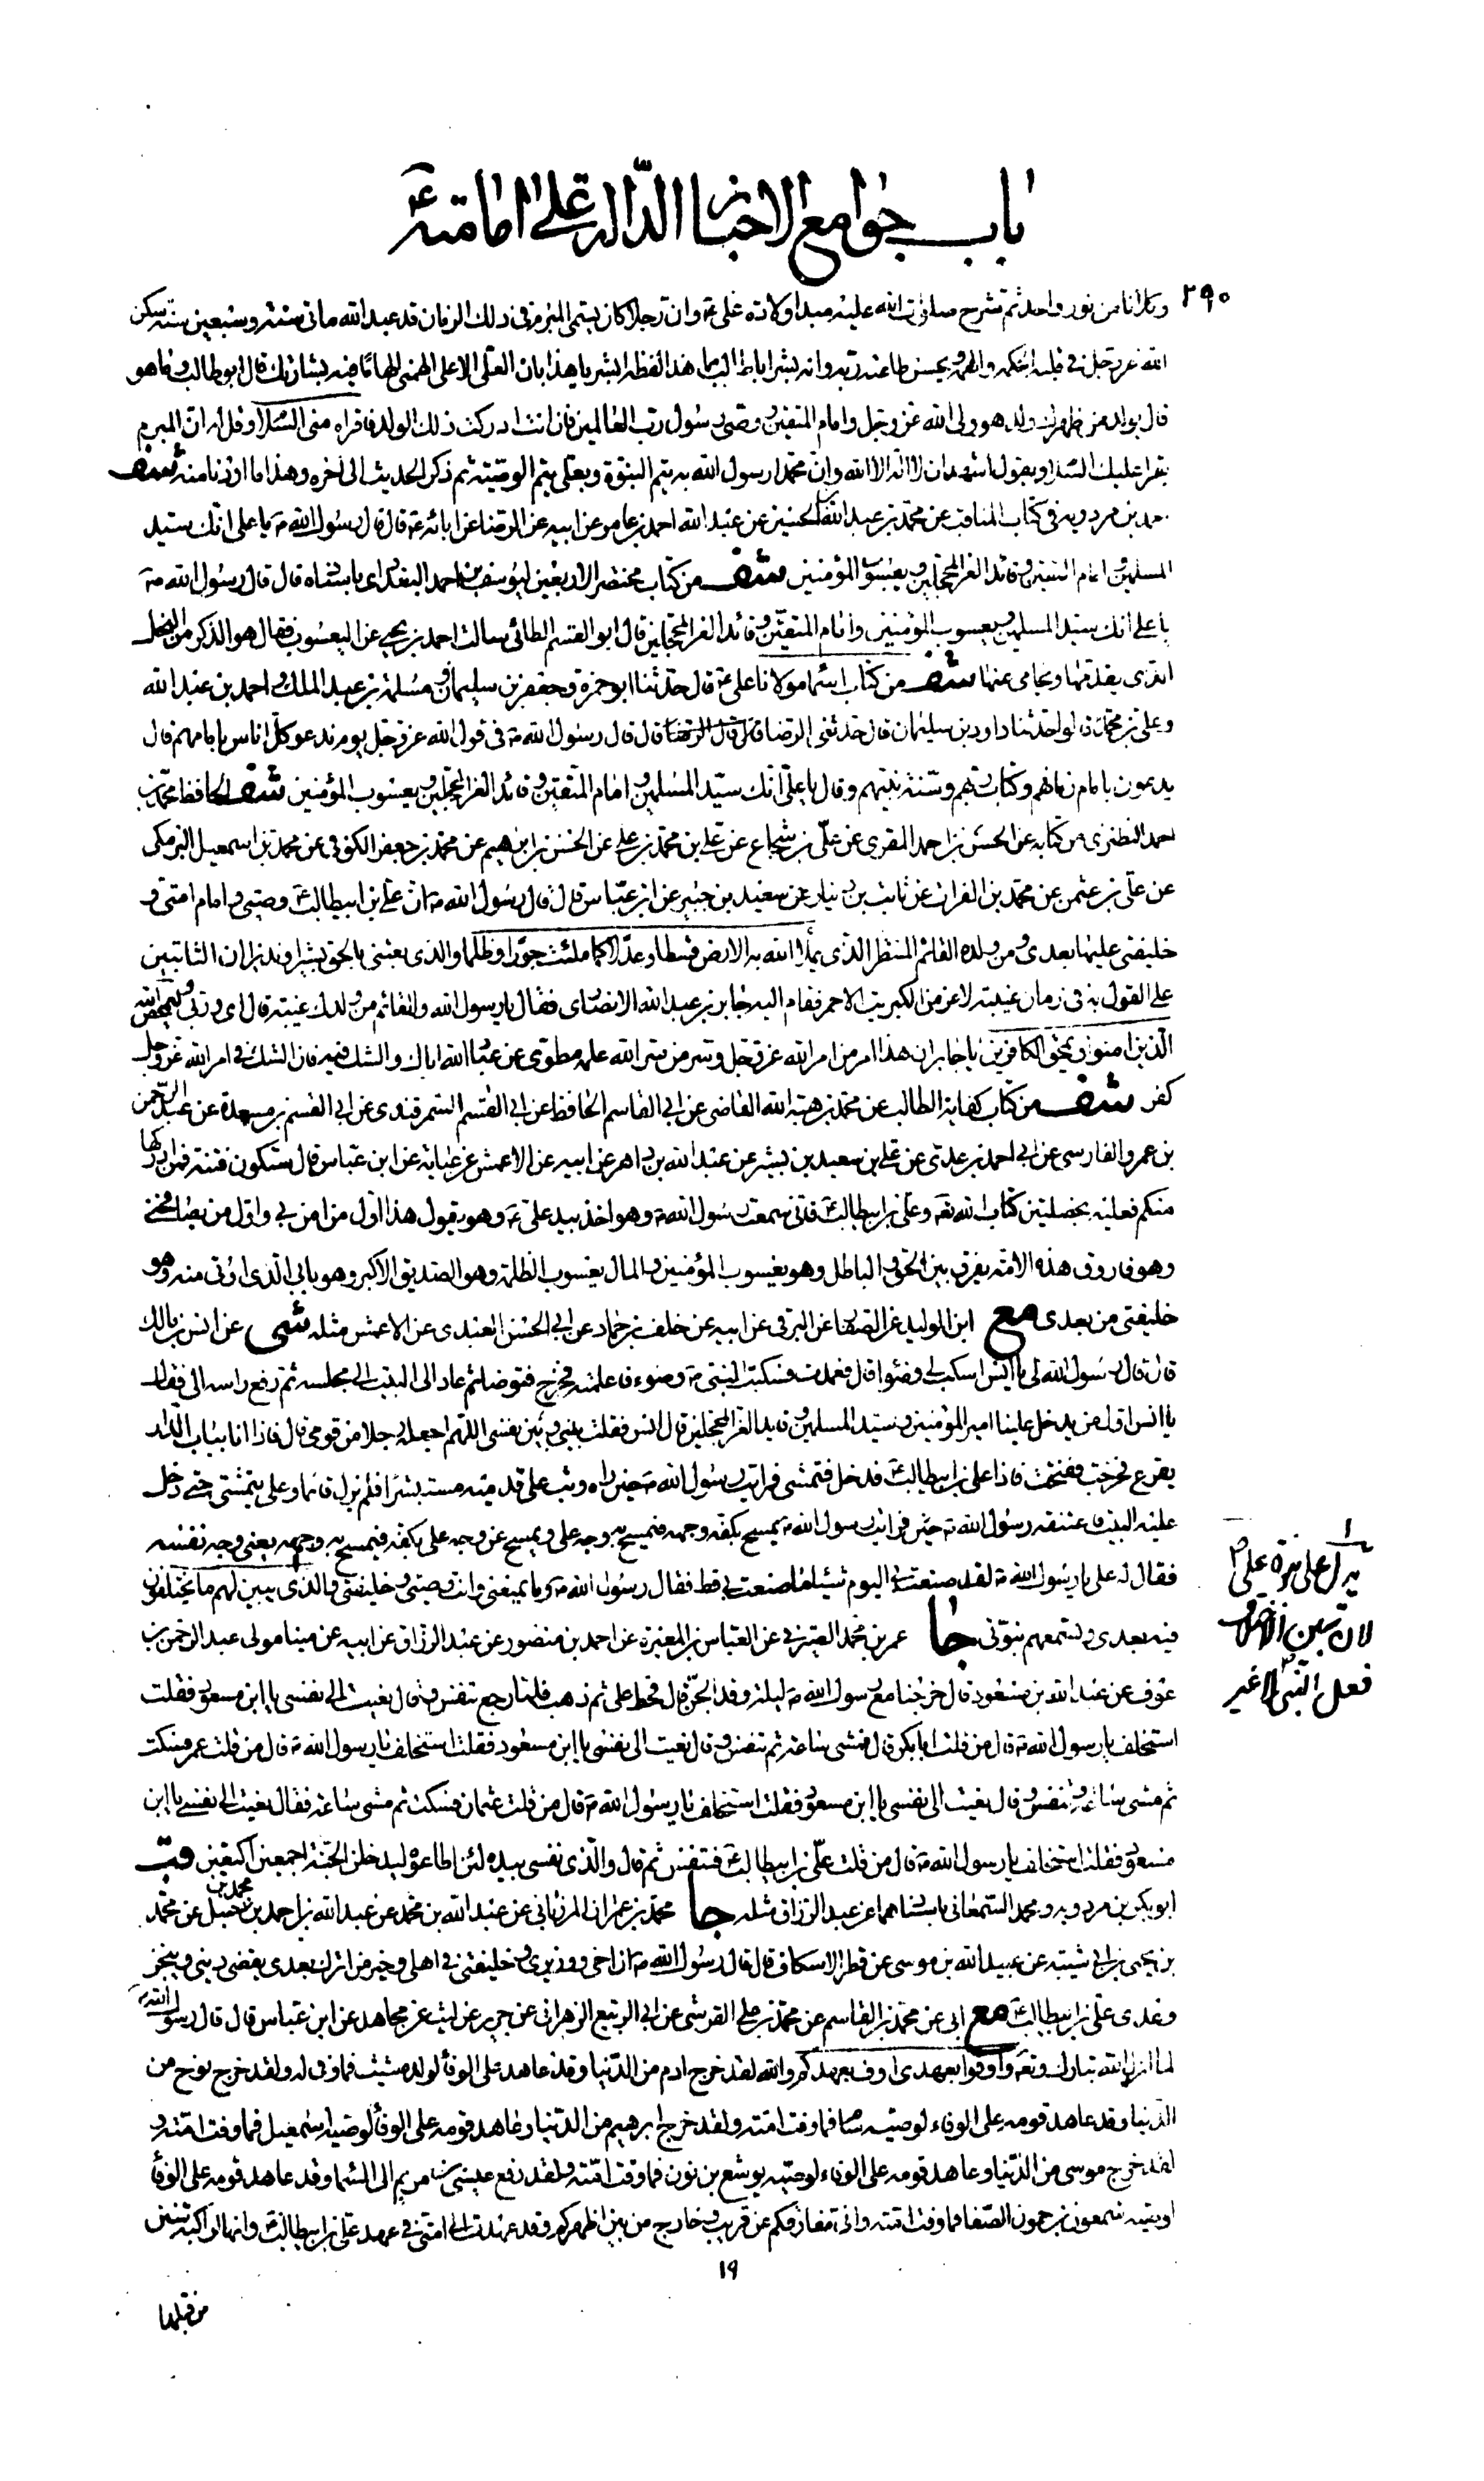 باب جوامع الاخبار الدالة على امامته ع
٢٩٠
وكلانا من نور واحد ثم تشرح صلوات الله عليه مبدا ولادة علي ع وان رجلا كان يسمى المبرم في ذلك الزمان قد عبد الله مائتي سنة وسبعين سنة سكن
الله عز وجل في قلبه الحكمة والهمه بحسن طاعته ربه وانه بشر اباطالب بما هذا لفظه ابشر يا هذا بان العلي الاعلى الهمني الهاما فيه بشارتك قال ابوطالب وما هو
قال يولد من ظهرك ولد هو ولي الله عز وجل وامام المتقين ووصي رسول رب العالمين فان انت ادركت ذلك الولد فاقراه مني السلام وقل له ان المبرم
يقرا عليك السلام ويقول اشهد ان لا اله الا الله وان محمدا رسول الله به يتم النبوة وبعلي يتم الوصية ثم ذكر الحديث الى اخره وهذا ما اردنا منه شف
احمد بن مردويه في كتاب المناقب عن محمد بن عبد الله بن الحسين عن عبد الله احمد بن عامر عن ابيه عن الرضا عن ابائه ع قال قال رسول الله ص يا علي انك سيد
المسلمين وامام المتقين وقائد الغر المحجلين ويعسوب المؤمنين شف من كتاب مختصر الاربعين ليوسف بن احمد البغدادي باسناده قال قال رسول الله ص
يا علي انك سيد المسلمين ويعسوب المؤمنين وامام المتقين وقائد الغر المحجلين قال ابو القسم الطائي سالت احمد بن يحيى عن اليعسوب فقال هو الذكر من النحل
الذي يقدمها ويحامي عنها شف من كتاب اسما مولانا علي ع قال حدثنا ابو حمزة وجعفر بن سليمان ومسلمة بن عبد الملك واحمد بن عبد الله
وعلي بن محمد قالوا حدثنا داود بن سليمان قال حدثني الرضا قال قال رسول الله ص في قول الله عز وجل يوم ندعو كل اناس بامامهم قال
يدعون بامام زمانهم وكتاب ربهم وسنة نبيهم وقال يا علي انك سيد المسلمين وامام المتقين وقائد الغر المحجلين ويعسوب المؤمنين شف الحافظ محمد بن
احمد النطنزي من كتابه عن الحسن بن احمد المقري عن علي بن شجاع عن علي بن محمد بن علي عن الحسن بن ابرهيم عن محمد بن جعفر الكوفي عن محمد بن اسمعيل البرمكي
عن علي بن عثمن عن محمد بن الفرات عن ثابت بن دينار عن سعيد بن جبير عن ابن عباس قال قال رسول الله ص ان علي بن ابيطالب ع وصيي وامام امتي و
خليفتي عليها بعدي ومن ولده القائم المنتظر الذي يملا الله به الارض قسطا وعدلا كما ملئت جورا وظلما والذي بعثني بالحق بشيرا ونذيرا ان الثابتين
على القول به في زمان غيبته لاعز من الكبريت الاحمر فقام اليه جابر بن عبد الله الانصاري فقال يا رسول الله وللقائم من ولدك غيبة قال اي وربي وليمحص الله
الذين امنوا ويمحق الكافرين يا جابر ان هذا امر من امر الله عز وجل وسر من سر الله علمه مطوي عن عباد الله اياك والشك فيه فان الشك في امر الله عز وجل
كفر شف من كتاب كفاية الطالب عن محمد بن هبة الله القاضي عن ابي القاسم الحافظ عن ابي القسم السمرقندي عن ابي القسم بن مسعدة عن عبد الرحمن
بن عمرو الفارسي عن ابي احمد بن عدي عن علي بن سعيد بن بشير عن عبد الله بن داهر عن ابيه عن الاعمش عن عباية عن ابن عباس قال ستكون فتنة فمن ادركها
منكم فعليه بخصلتين كتاب الله تعه وعلي بن ابيطالب ع فاني سمعت رسول الله ص وهو اخذ بيد علي ع وهو يقول هذا اول من امن بي واول من يصافحني
وهو فاروق هذه الامة يفرق بين الحق والباطل وهو يعسوب المؤمنين والمال يعسوب الظلمة وهو الصديق الاكبر وهو بابي الذي اوتى منه وهو
خليفتي من بعدي مع ابن الوليد عن الصفار عن البرقي عن ابيه عن خلف بن حماد عن ابي الحسن العبدي عن الاعمش مثله شى عن انس بن مالك
قال قال رسول الله لي يا انس اسكب لي وضوءا قال فعمدت فسكبت للنبي ص وضوء فاعلمته فخرج فتوضا ثم عاد الى البيت الى مجلسه ثم رفع راسه الي فقال
يا انس اول من يدخل علينا امير المؤمنين وسيد المسلمين وقايد الغر المحجلين قال انس فقلت بيني وبين نفسي اللهم اجعله رجلا من قومي قال فاذا انا بباب الدار
يقرع فخرجت ففتحت فاذا علي بن ابيطالب ع فدخل فتمشى فرايت رسول الله ص حين راه وثب على قدميه مستبشرا فلم يزل قائما وعلي يتمشى حتى دخل
عليه البيت فاعتنقه رسول الله ص حين فرايت رسول الله ص يمسح بكفه وجهه فيمسح به وجه علي ويمسح عن وجه علي بكفه فيمسح به وجهه يعني وجه نفسه
فقال له علي يا رسول الله ص لقد صنعت بي اليوم شيئا ما صنعت بي قط فقال رسول الله ص وما يمنعني وانت وصيي وخليفتي والذي يبين لهم ما يختلفون
فيه بعدي وتسمعهم نبوتي جا عمر بن محمد الصيرفي عن العباس بن المغيرة عن احمد بن منصور عن عبد الرزاق عن ابيه عن مينا مولى عبد الرحمن بن
عوف عن عبد الله بن مسعود قال خرجنا مع رسول الله ص ليلة وفد الجن قال فحط علي ثم ذهب فلما رجع تنفس وقال نعيت الي نفسي يا ابن مسعود فقلت
استخلف يا رسول الله ص قال من قلت ابا بكر قال فمشى ساعة ثم تنفس وقال نعيت الى نفسي يا ابن مسعود فقلت استخلف يا رسول الله ص قال من قلت عمر فسكت
ثم مشى ساعة وتنفس وقال نعيت الى نفسي يا ابن مسعود فقلت استخلف يا رسول الله ص قال من قلت عثمان فسكت ثم مشى ساعة فقال نعيت الي نفسي يا ابن
مسعود فقلت استخلف يا رسول الله ص قال من قلت علي بن ابيطالب ع فتنفس ثم قال والذي نفسي بيده لئن اطاعوه ليدخلن الجنة اجمعين اكتعين قب
ابوبكر بن مردويه ومحمد السمعاني باسنادهما عن عبد الرزاق مثله جا محمد بن عمران المرزباني عن عبد الله بن محمد عن عبد الله بن احمد بن محمد بن حنبل عن محمد
بن يحيى بن ابي شيبة عن عبيد الله بن موسى عن فطر الاسكاف قال قال رسول الله ص ان اخي ووزيري وخليفتي في اهلي وخير من اترك بعدي يقضي ديني وينجز
وعدي علي بن ابيطالب ع مع ابي عن محمد بن القاسم عن محمد بن علي القرشي عن ابي الربيع الزهراني عن جرير عن ليث عن مجاهد عن ابن عباس قال قال رسول الله ص
لما انزل الله تبارك وتعه واوفوا بعهدي اوف بعهدكم والله لقد خرج ادم من الدنيا وقد عاهد على الوفا لولده شيث فما وفي له ولقد خرج نوح من
الدنيا وقد عاهد قومه على الوفاء لوصيه سام فما وفت امته ولقد خرج ابرهيم من الدنيا وعاهد قومه على الوفا لوصيه اسمعيل فما وفت امته و
لقد خرج موسى من الدنيا وعاهد قومه على الوفاء لوصيه يوشع بن نون فما وفت امته ولقد رفع عيسى بن مريم الى السما وقد عاهد قومه على الوفا
لوصيه شمعون بن حمون الصفا فما وفت امته واني مفارقكم عن قريب وخارج من بين اظهركم وقد عهدت الى امتي في عهد علي بن ابيطالب ع وانها لراكبة سنن
يدل على مزية علي ع
لان
فعل النبي ص لا غير
١٩
من قبلها